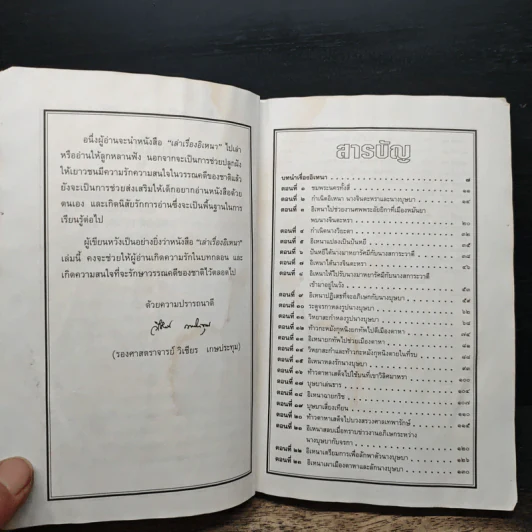 อนึ่งผู้อ่านจะนำหนังสือ "เล่าเรื่องอิเหนา" ไปเล่า
หรืออ่านให้ลูกหลานฟัง นอกจากจะเป็นการช่วยปลูกฝัง
ให้เยาวชนมีความรักความสนใจในวรรณคดีของชาติแล้ว
ยังจะเป็นการช่วยส่งเสริมให้เด็กอยากอ่านหนังสือด้วย
ตนเอง และเกิดนิสัยรักการอ่านซึ่งจะเป็นพื้นฐานในการ
เรียนรู้ต่อไป
ผู้เขียนหวังเป็นอย่างยิ่งว่าหนังสือ "เล่าเรื่องอิเหนา"
เล่มนี้ คงจะช่วยให้ผู้อ่านเกิดความรักในบทกลอน และ
เกิดความสนใจที่จะรักษาวรรณคดีของชาติไว้ตลอดไป
ด้วยความปรารถนาดี
(รองศาสตราจารย์ วิเชียร เกษประทุม)
สารบัญ
บทนำเรื่องอิเหนา ๗
ตอนที่ ๑ ชมพระนครทั้งสี่ ๑๑
ตอนที่ ๒ กำเนิดอิเหนา นางจินตะหราและนางบุษบา ๑๔
ตอนที่ ๓ อิเหนาไปช่วยงานศพพระอัยยิกาที่เมืองหมันยา
พบนางจินตะหรา
ตอนที่ ๔ กำเนิดนางวิยะดา ๓๒
ตอนที่ ๕ อิเหนาแปลงเป็นปันหยี
ตอนที่ ๖ ปันหยีได้นางมาหยารัศมีกับนางสการะวาตี
ตอนที่ ๗ อิเหนาได้นางจินตะหรา
ตอนที่ ๘ อิเหนาให้ไปรับนางมาหยารัศมีกับนางสการะวาตี
เข้ามาอยู่ในวัง
ตอนที่ ๙ อิเหนาปฏิเสธที่จะอภิเษกกับนางบุษบา
ตอนที่ ๑๐ ระตูจรกาหลงรูปนางบุษบา
ตอนที่ ๑๑ วิหยาสะกำหลงรูปนางบุษบา
ตอนที่ ๑๒ ท้าวกะหมังกุหนิงยกทัพไปตีเมืองดาหา
ตอนที่ ๑๓ อิเหนายกทัพไปช่วยเมืองดาหา
ตอนที่ ๑๔ วิหยาสะกำและท้าวกะหมังกุหนิงตายในที่รบ
ตอนที่ ๑๕ อิเหนาหลงรักนางบุษบา
ตอนที่ ๑๖ ท้าวดาหาเสด็จไปใช้บนที่เขาวิลิศมาหรา ๑๐๐
ตอนที่ ๑๗ บุษบาเล่นธาร
ตอนที่ ๑๘ อิเหนาฉายกริช
ตอนที่ ๑๙ บุษบาเสี่ยงเทียน ๑๐๗
ตอนที่ ๒๐ ท้าวดาหาเสด็จไปบวงสรวงศาลเทพารักษ์
ตอนที่ ๒๑ อิเหนาสลบเมื่อทราบข่าวงานอภิเษกระหว่าง
นางบุษบากับจรกา ๑๒๐
ตอนที่ ๒๒ อิเหนาเตรียมการเพื่อลักพาตัวนางบุษบา ๑๒๖
ตอนที่ ๒๓ อิเหนาเผาเมืองดาหาและลักนางบุษบา ๑๓๐